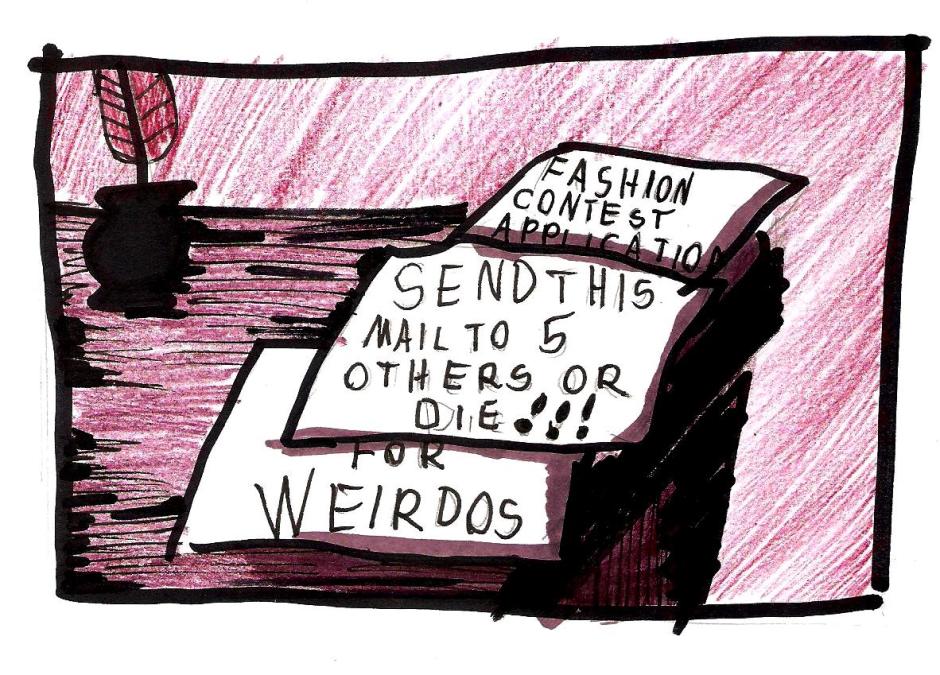 FASHION
CONTEST
APPLICATION
SEND THIS
MAIL TO 5
OTHERS OR
DIE!!!
FOR
WEIRDOS